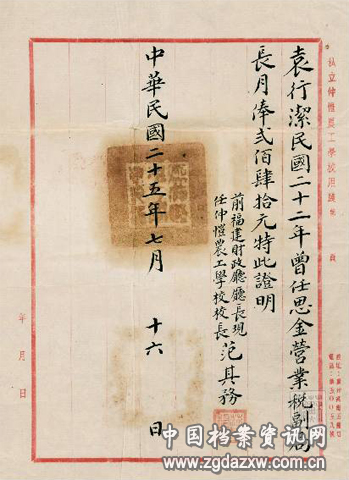 私立仲愷農工學校用牋
袁行潔民國二十二年曾任思金營業稅副局
長月俸貳佰肆拾元特此證明
前福建財政廳廳長現
任仲愷農工學校校長 范其務
中華民國二十五年七月 十六 日
年 月 日
中国档案资讯网
www.zgdazxw.com.cn